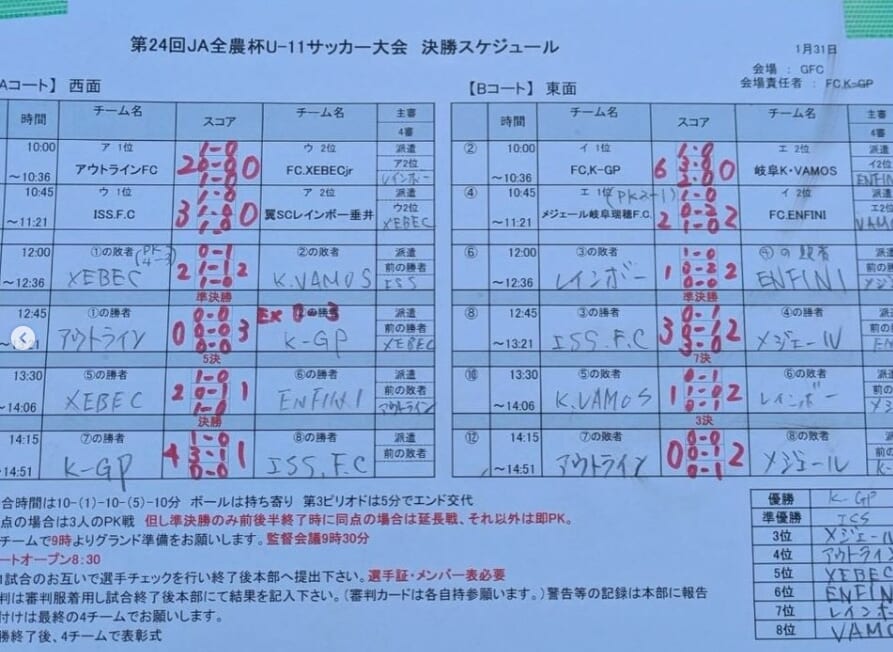 第24回JA全農杯U-11サッカー大会 決勝スケジュール
1月31日
会場 : GFC
会場責任者 : FC.K-GP
Aコート】 西面
【Bコート】 東面
時間 チーム名 スコア チーム名 主審 4審
10:00 ~10:36 ア 1位 アウトラインFC 2 1-0 0-0 1-0 0 ウ 2位 FC.XEBECjr 派遣 ア2位 レインボー
② 10:00 ~10:36 イ 1位 FC,K-GP 6 1-0 3-0 2-0 0 エ 2位 岐阜K・VAMOS 派遣 イ2位 ENFINI
10:45 ~11:21 ウ 1位 ISS.F.C 3 1-0 1-0 1-0 0 ア 2位 翼SCレインボー垂井 派遣 ウ2位 XEBEC
④ 10:45 ~11:21 エ 1位 (PK2-1) メジェール岐阜瑞穂F.C. 2 1-0 0-2 1-0 2 イ 2位 FC.ENFINI 派遣 エ2位 VAM
12:00 ~12:36 ①の敗者 (PK 4-3) XEBEC 2 0-1 1-1 1-0 2 ②の敗者 K.VAMOS 派遣 前の勝者 ISS
⑥ 12:00 ~12:36 ③の敗者 レインボー 1 1-0 0-2 0-0 2 ④の敗者 ENFINI 派遣 前の勝者 メジ
準決勝
準決勝
12:45 ①の勝者 アウトライン 0 0-0 0-0 0-0 3 EX 0-3 ②の勝者 K-GP 派遣 前の勝者 XEBEC
⑧ 12:45 ~13:21 ③の勝者 ISS.F.C 3 0-1 0-1 3-0 2 ④の勝者 メジェール 派遣 前の勝者 EN
5決
7決
13:30 ~14:06 ⑤の勝者 XEBEC 2 1-0 0-1 1-0 1 ⑥の勝者 ENFINI 派遣 前の敗者 アウトライン
⑩ 13:30 ~14:06 ⑤の敗者 K.VAMOS 1 0-1 1-0 0-1 2 ⑥の敗者 レインボー 派遣 前の敗者 メジ
決勝
3決
14:15 ~14:51 ⑦の勝者 K-GP 4 1-0 3-1 0-0 1 ⑧の勝者 ISS.F.C 派遣 前の敗者
⑫ 14:15 ~14:51 ⑦の敗者 アウトライン 0 0-0 0-1 0-1 2 ⑧の敗者 メジェール 派遣 前の勝者 K-
合時間は10-(1)-10-(5)-10分 ボールは持ち寄り 第3ピリオドは5分でエンド交代
点の場合は3人のPK戦 但し準決勝のみ前後半終了時に同点の場合は延長戦、それ以外は即PK。
チームで9時よりグランド準備をお願いします。監督会議9時30分
ートオープン8:30
1試合のお互いで選手チェックを行い終了後本部へ提出下さい。選手証・メンバー表必要
判は審判服着用し試合終了後本部にて結果を記入下さい。(審判カードは各自持参願います。)警告等の記録は本部に報告
付けは最終の4チームでお願します。
勝終了後、4チームで表彰式
優勝 K-GP
準優勝 ISS
3位 メジェール
4位 アウトライン
5位 XEBEC
6位 ENFINI
7位 レインボー
8位 VAMO